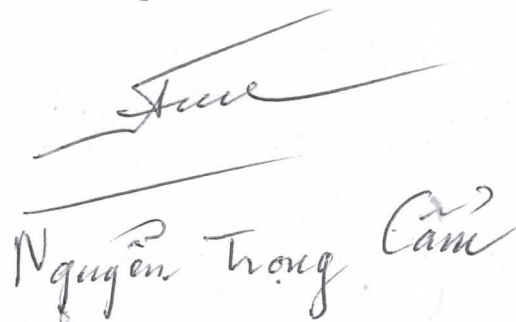 Nguyễn Trọng Cẩm